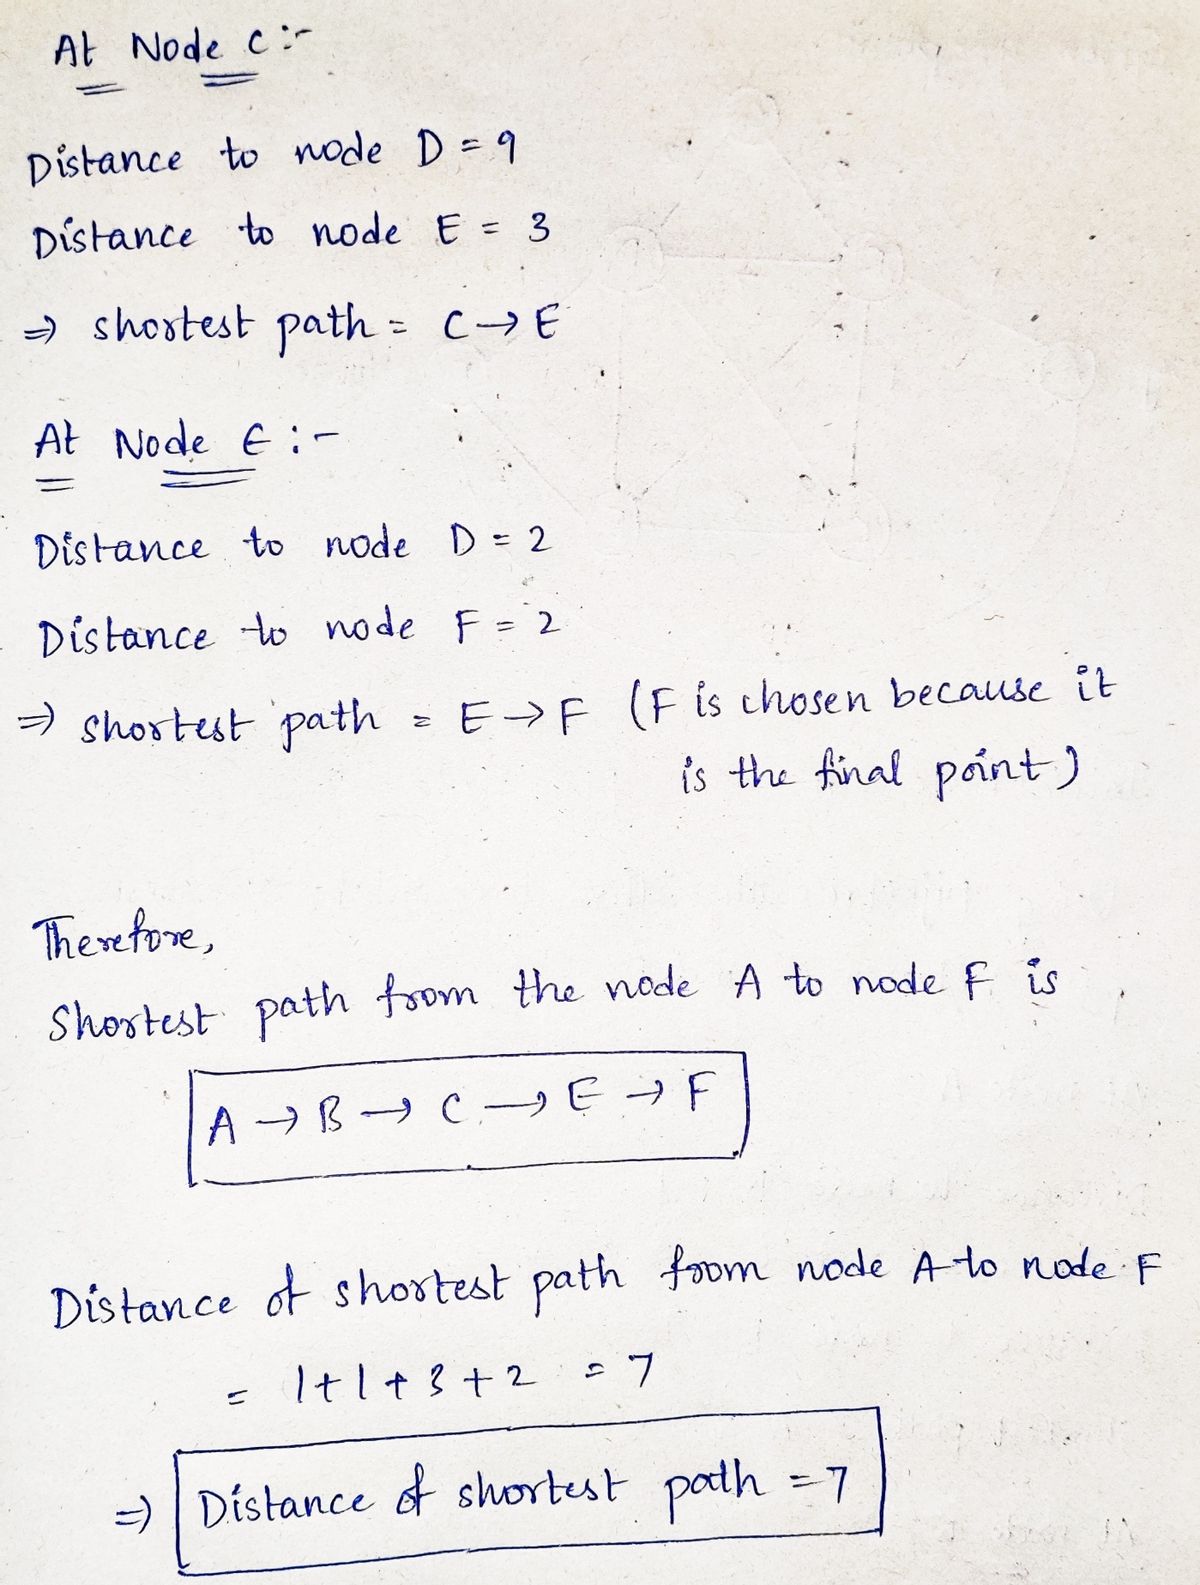 At Node C :-
Distance to node D = 9
Distance to node E = 3
⇒ shortest path = C → E
At Node E :-
Distance to node D = 2
Distance to node F = 2
⇒ shortest path = E → F (F is chosen because it
is the final point)
Therefore,
Shortest path from the node A to node F is
A → B → C → E → F
Distance of shortest path from node A to node F
= 1+1+3+2 = 7
⇒ Distance of shortest path = 7